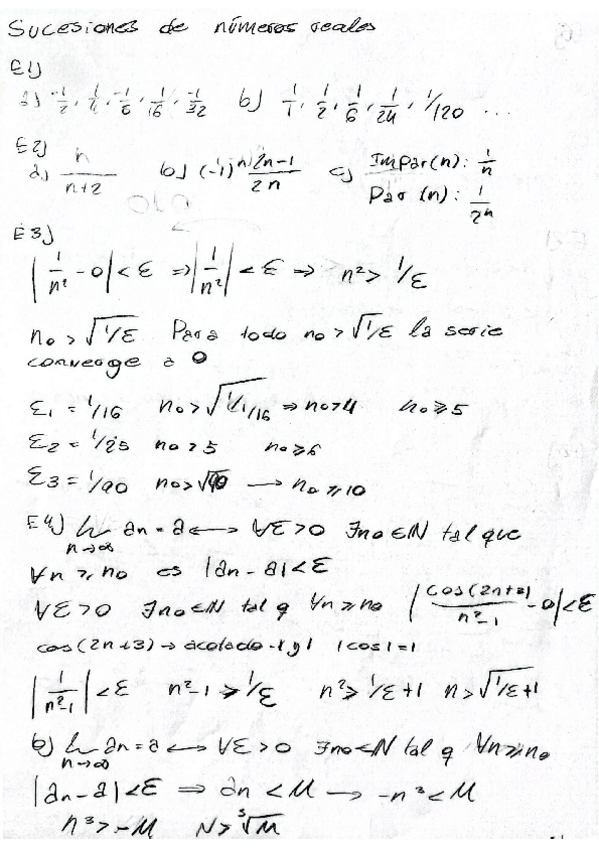 Sucesiones de números reales
E1)
a) -1/2, 1/4, -1/8, 1/16, -1/32 b) 1/1, 1/2, 1/6, 1/24, 1/120 ...
E2)
a) n/(n+2) b) (-1)^n (2n-1)/(2n) c) Impar(n): 1/n
Par (n): 1/2^n
E3)
|1/n² - 0| < ε ⇒ |1/n²| < ε ⇒ n² > 1/ε
n₀ > √(1/ε) Para todo n₀ > √(1/ε) la serie
converge a 0
ε₁ = 1/16 n₀ > √(1/1/16) ⇒ n₀ > 4 n₀ ≥ 5
ε₂ = 1/25 n₀ > 5 n₀ ≥ 6
ε₃ = 1/90 n₀ > √90 → n₀ ≥ 10
E4) lim n→∞ an = a ⟷ ∀ε>0 ∃n₀∈N tal que
∀n ≥ n₀ es |an - a| < ε
∀ε>0 ∃n₀∈N tal q ∀n ≥ n₀ |cos(2n+3)/(n²-1) - 0| < ε
cos(2n+3) → acotado -1 y 1 |cos|=1
|1/(n²-1)| < ε n²-1 > 1/ε n² > 1/ε+1 n > √(1/ε+1)
b) lim n→∞ an = a ⟷ ∀ε>0 ∃n₀∈N tal q ∀n ≥ n₀
|an - a| < ε ⇒ an < M → -n³ < M
n³ > -M N > ³√M